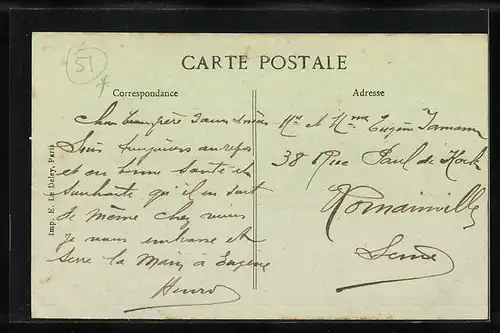 51
CARTE POSTALE
Correspondance
Adresse
Cher Beau père
Suis toujours au repos
et en bonne Santé et
souhaite qu'il en soit
de même chez vous
je vous embrasse et
serre la Main à Eugène
Henri
Mr et Mme Eugène
38 Rue Paul de Kock
Romainville
Seine
Imp. E. Le Deley, Paris